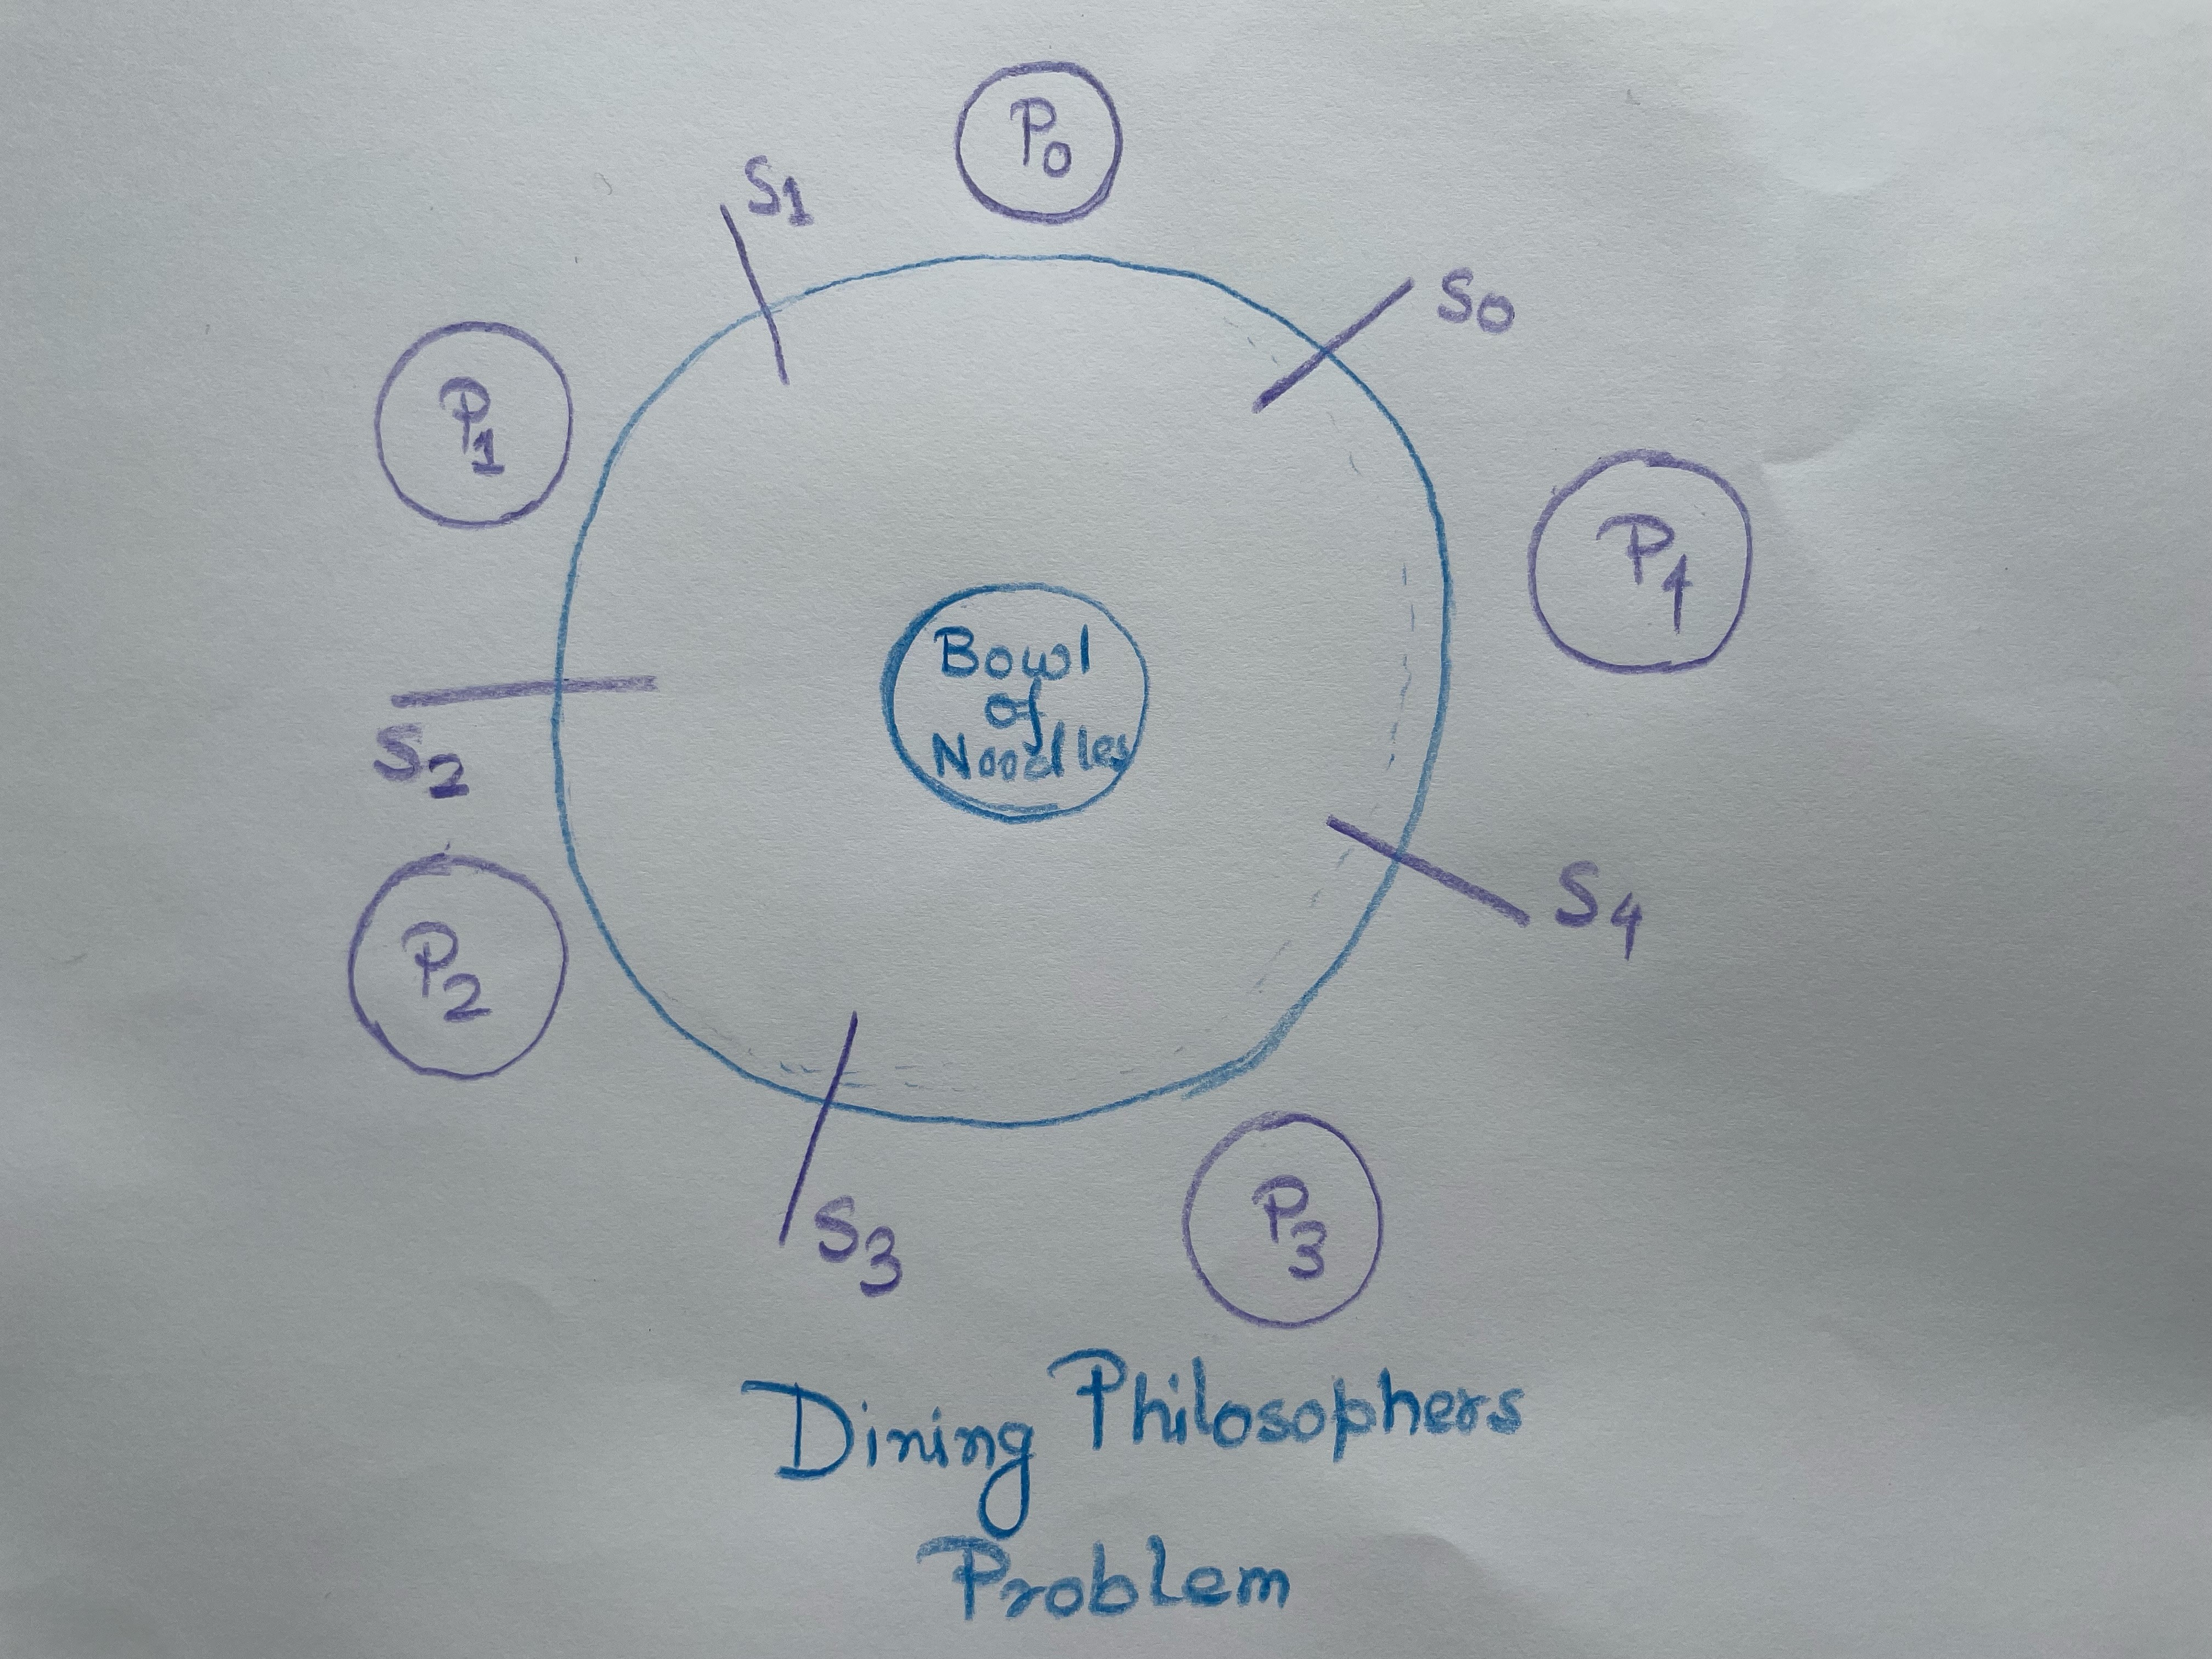 P0
S1
S0
P1
P4
Bowl
of
Noodles
S2
S4
P2
S3
P3
Dining Philosophers
Problem